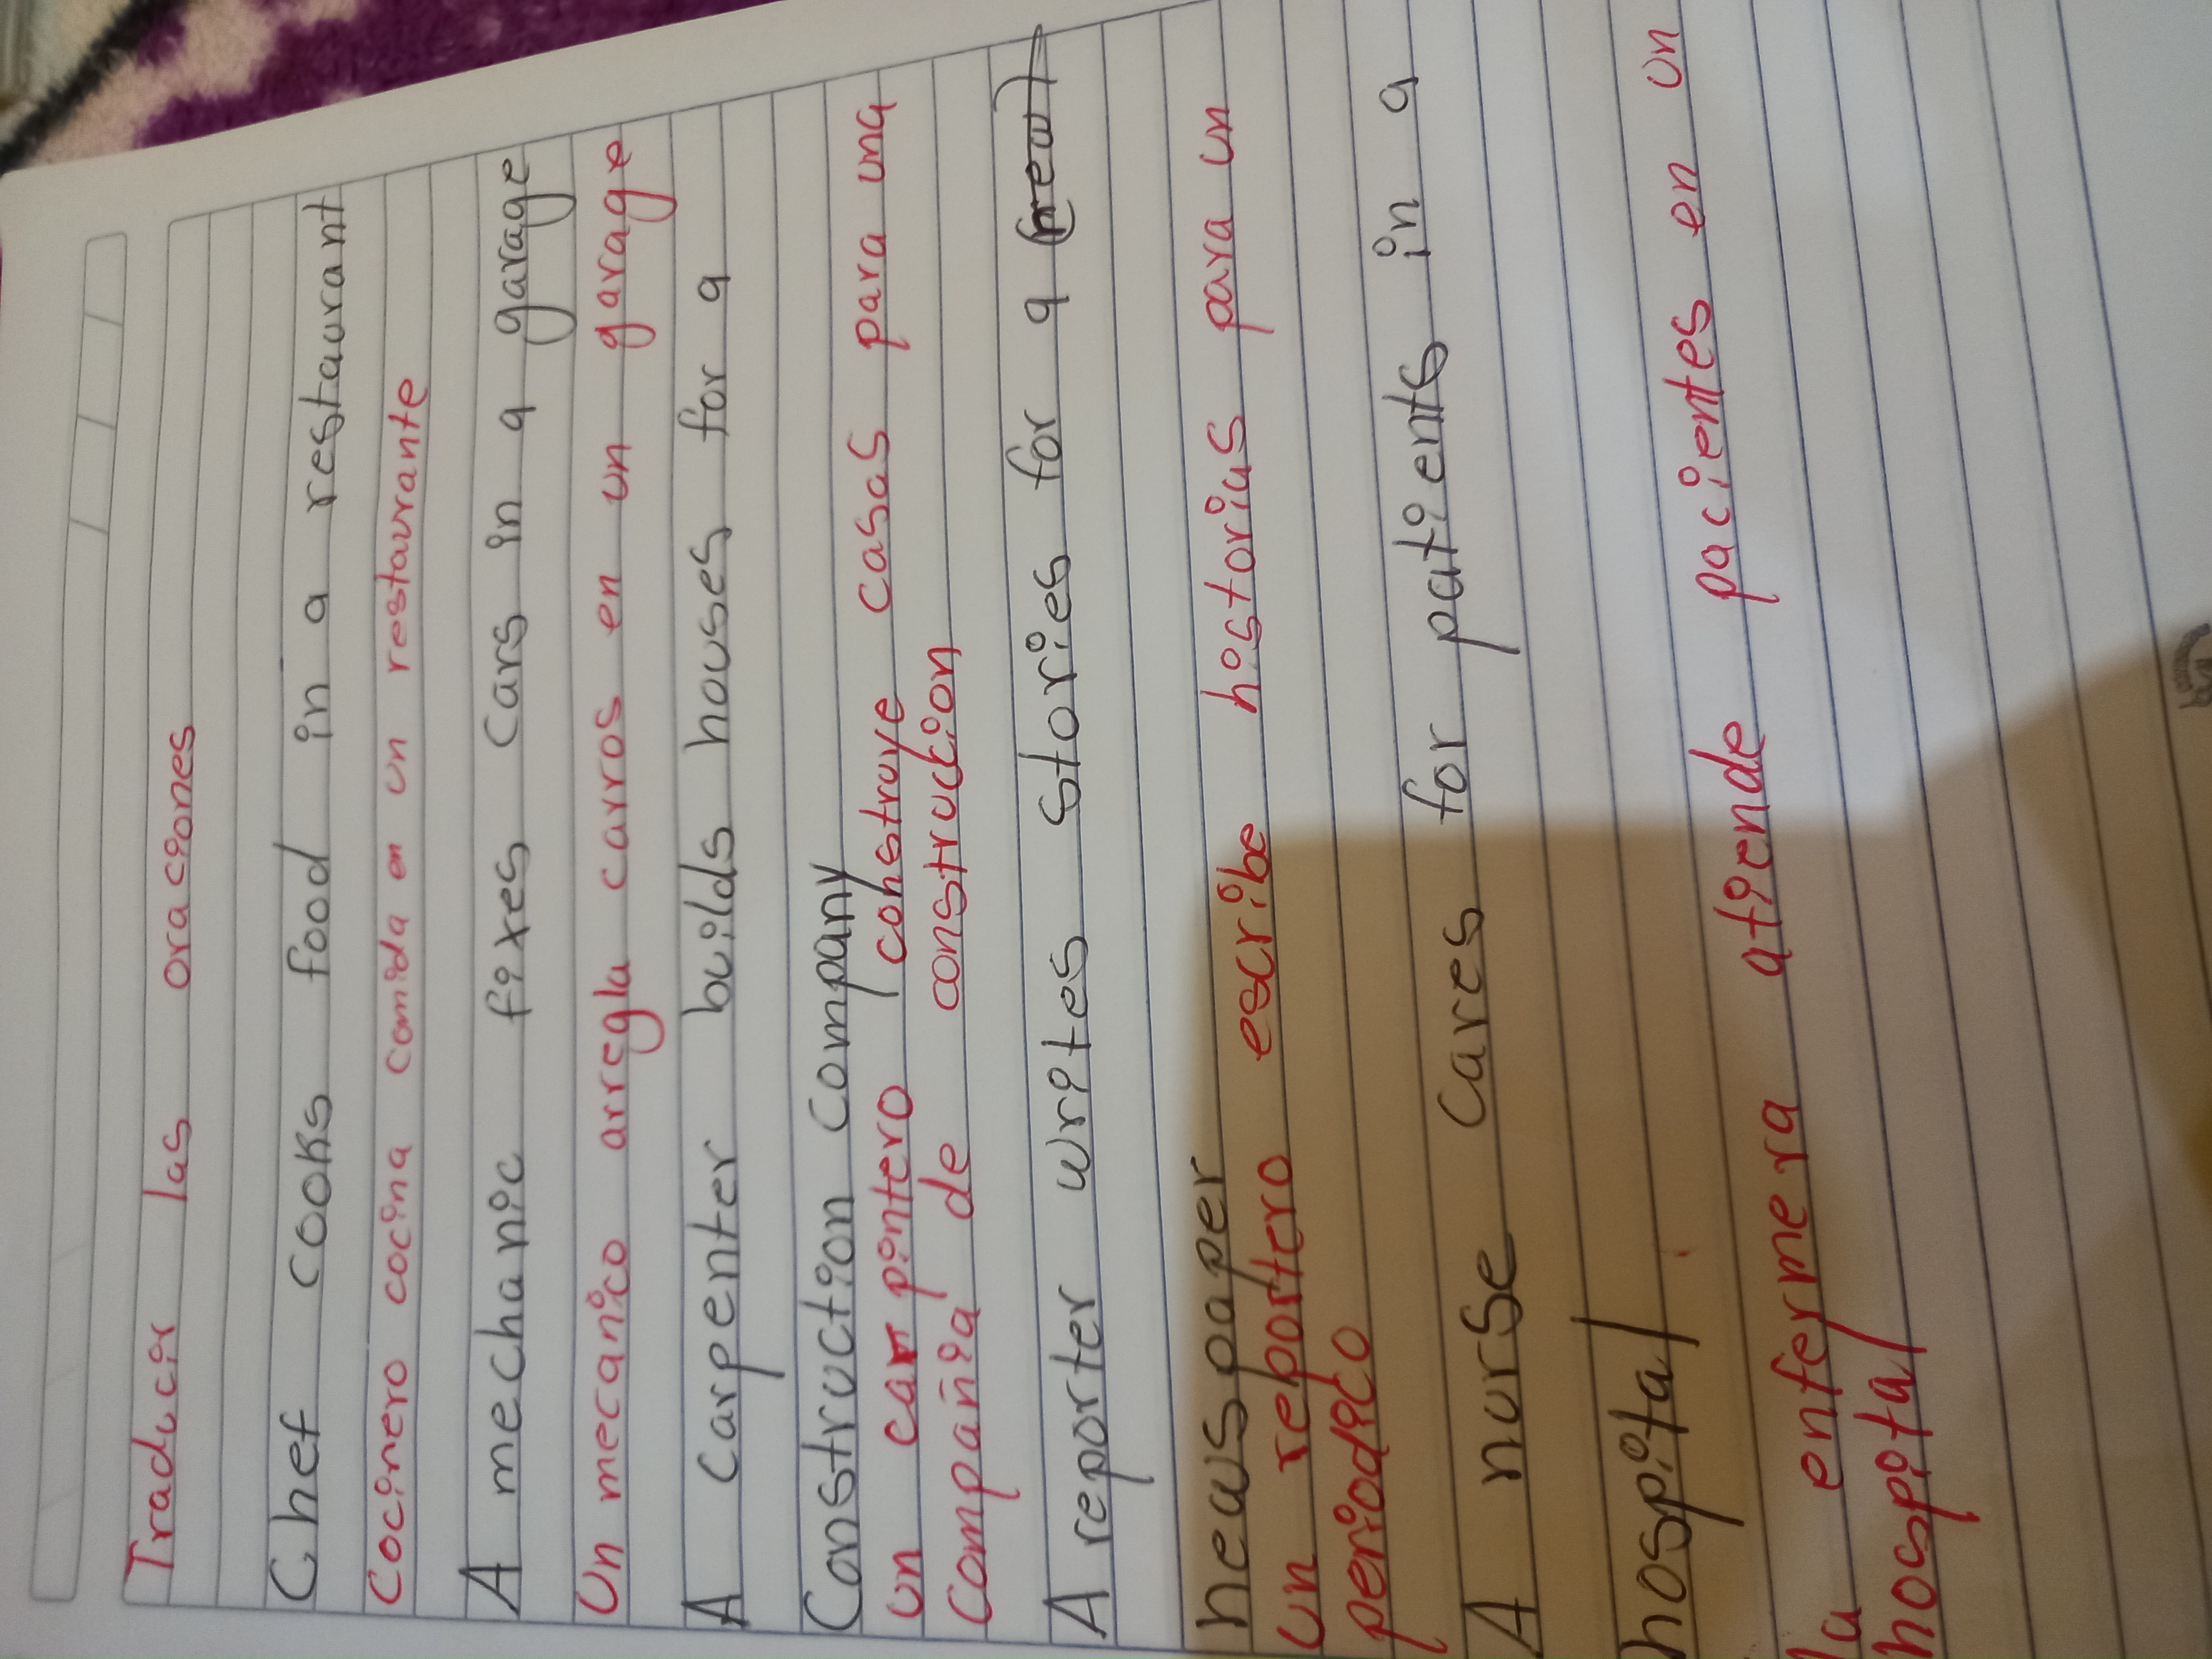 Traducir las oraciones
Chef cooks food in a restaurant
Cocinero cocina comida en un restaurante
A mechanic fixes cars in a garage
Un mecanico arregla carros en un garage
A carpenter builds houses for a
Construction company
un carpintero construye casas para una
compañia de construction
A reporter writes stories for a
newspaper
un reportero escribe historias para un
periodico
A nurse cares for patients in a
hospital
la enfermera atiende pacientes en un
hospital